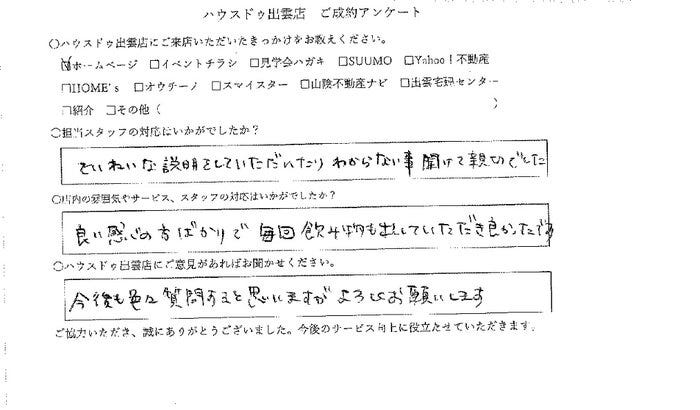 ハウスドゥ出雲店　ご成約アンケート
○ハウスドゥ出雲店にご来店いただいたきっかけをお教えください。
☑ホームページ □イベントチラシ □見学会ハガキ □SUUMO □Yahoo!不動産
□HOME's □オウチーノ □スマイスター □山陰不動産ナビ □出雲宅建センター
□紹介 □その他（　　　）
○担当スタッフの対応はいかがでしたか？
ていねいな説明をしていただいたり わからない事 聞けて親切でした
○店内の雰囲気やサービス、スタッフの対応はいかがでしたか？
良い感じの方ばかりで 毎回飲み物も出していただき良かったです
○ハウスドゥ出雲店にご意見があればお聞かせください。
今後も色々質問すると思いますが よろしくお願いします
ご協力いただき、誠にありがとうございました。今後のサービス向上に役立たせていただきます。